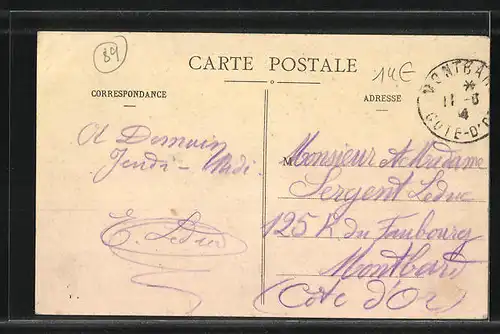 89
CARTE POSTALE
14€
CORRESPONDANCE
ADRESSE
MONTBAR
11-6
COTE-D'O
A Demain
Jeudi - Midi
E. Leduc
Monsieur et Madame
Sergent Leduc
125 du Faubourg
Montbard
Côte d'Or